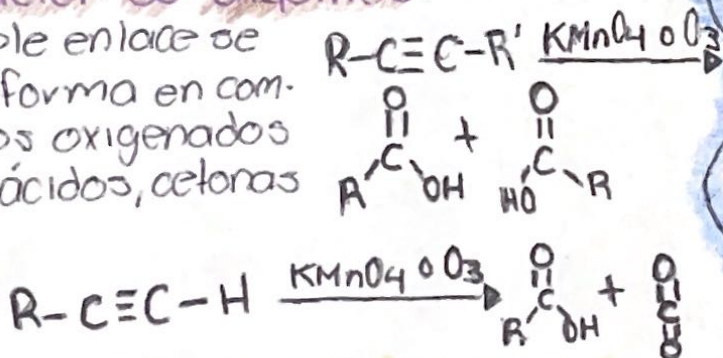 ple enlace se
forma en com-
os oxigenados
ácidos, cetonas
R-C≡C-R' KMnO4 o O3
O O
C + C
R OH HO R
R-C≡C-H KMnO4 o O3
O O
C + C
R OH O